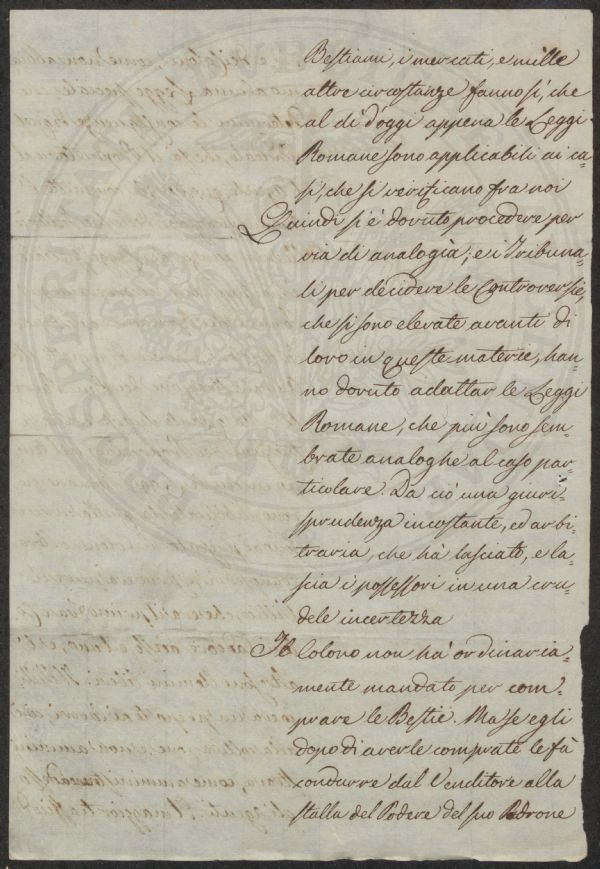 Bestiami, i mercati, e mille
altre circostanze fanno sì, che
al dì d'oggi appena le Leggi
Romane sono applicabili ai ca-
si, che si verificano fra noi
Quindi si è dovuto procedere per
via di analogìa; e i Tribuna-
li per decidere le Controversie,
che si sono elevate avanti di
loro in queste materie, han-
no dovuto adattar le Leggi
Romane, che più sono sem-
brate analoghe al caso par-
ticolare. Da ciò una giuri-
sprudenza incostante, ed arbi-
traria, che hà lasciato, e la-
scia i possessori in una cru-
dele incertezza
Il Colono non hà ordinaria-
mente mandato per com-
prare le Bestie. Ma se egli
dopo di averle comprate le fà
condurre dal Venditore alla
stalla del Podere del suo Padrone